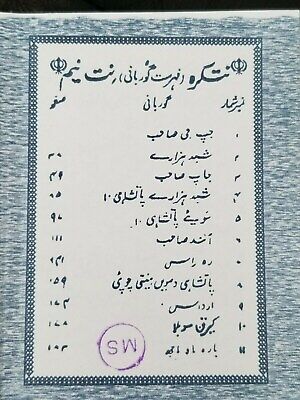 نتکره (فہرست گوربانی) نت نیم
نمبر شمار گوربانی صفحہ
۱ جپ جی صاحب
۲ شبد ہزارے ۳۸
۳ جاپ صاحب ۴۹
۴ شبد ہزارے پاتشاہی ۱۰ ۸۵
۵ سویئے پاتشاہی ۱۰ ۹۷
۶ آنند صاحب ۱۱۱
۷ رہ راس ۱۴۱
۸ پاتشاہی دسویں بینتی چوپئی ۱۵۹
۹ ارداس ۱۷۴
۱۰ کیرتن سوہلا ۱۷۸
۱۱ بارہ ماہ مانجھ
MS